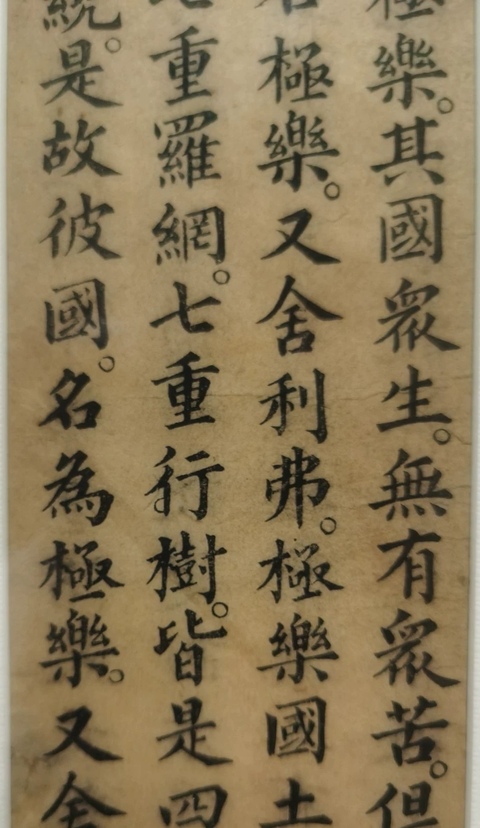 極樂。其國眾生。無有眾苦。但
名極樂。又舍利弗。極樂國土
七重羅網。七重行樹。皆是四
繞。是故彼國。名為極樂。又舍